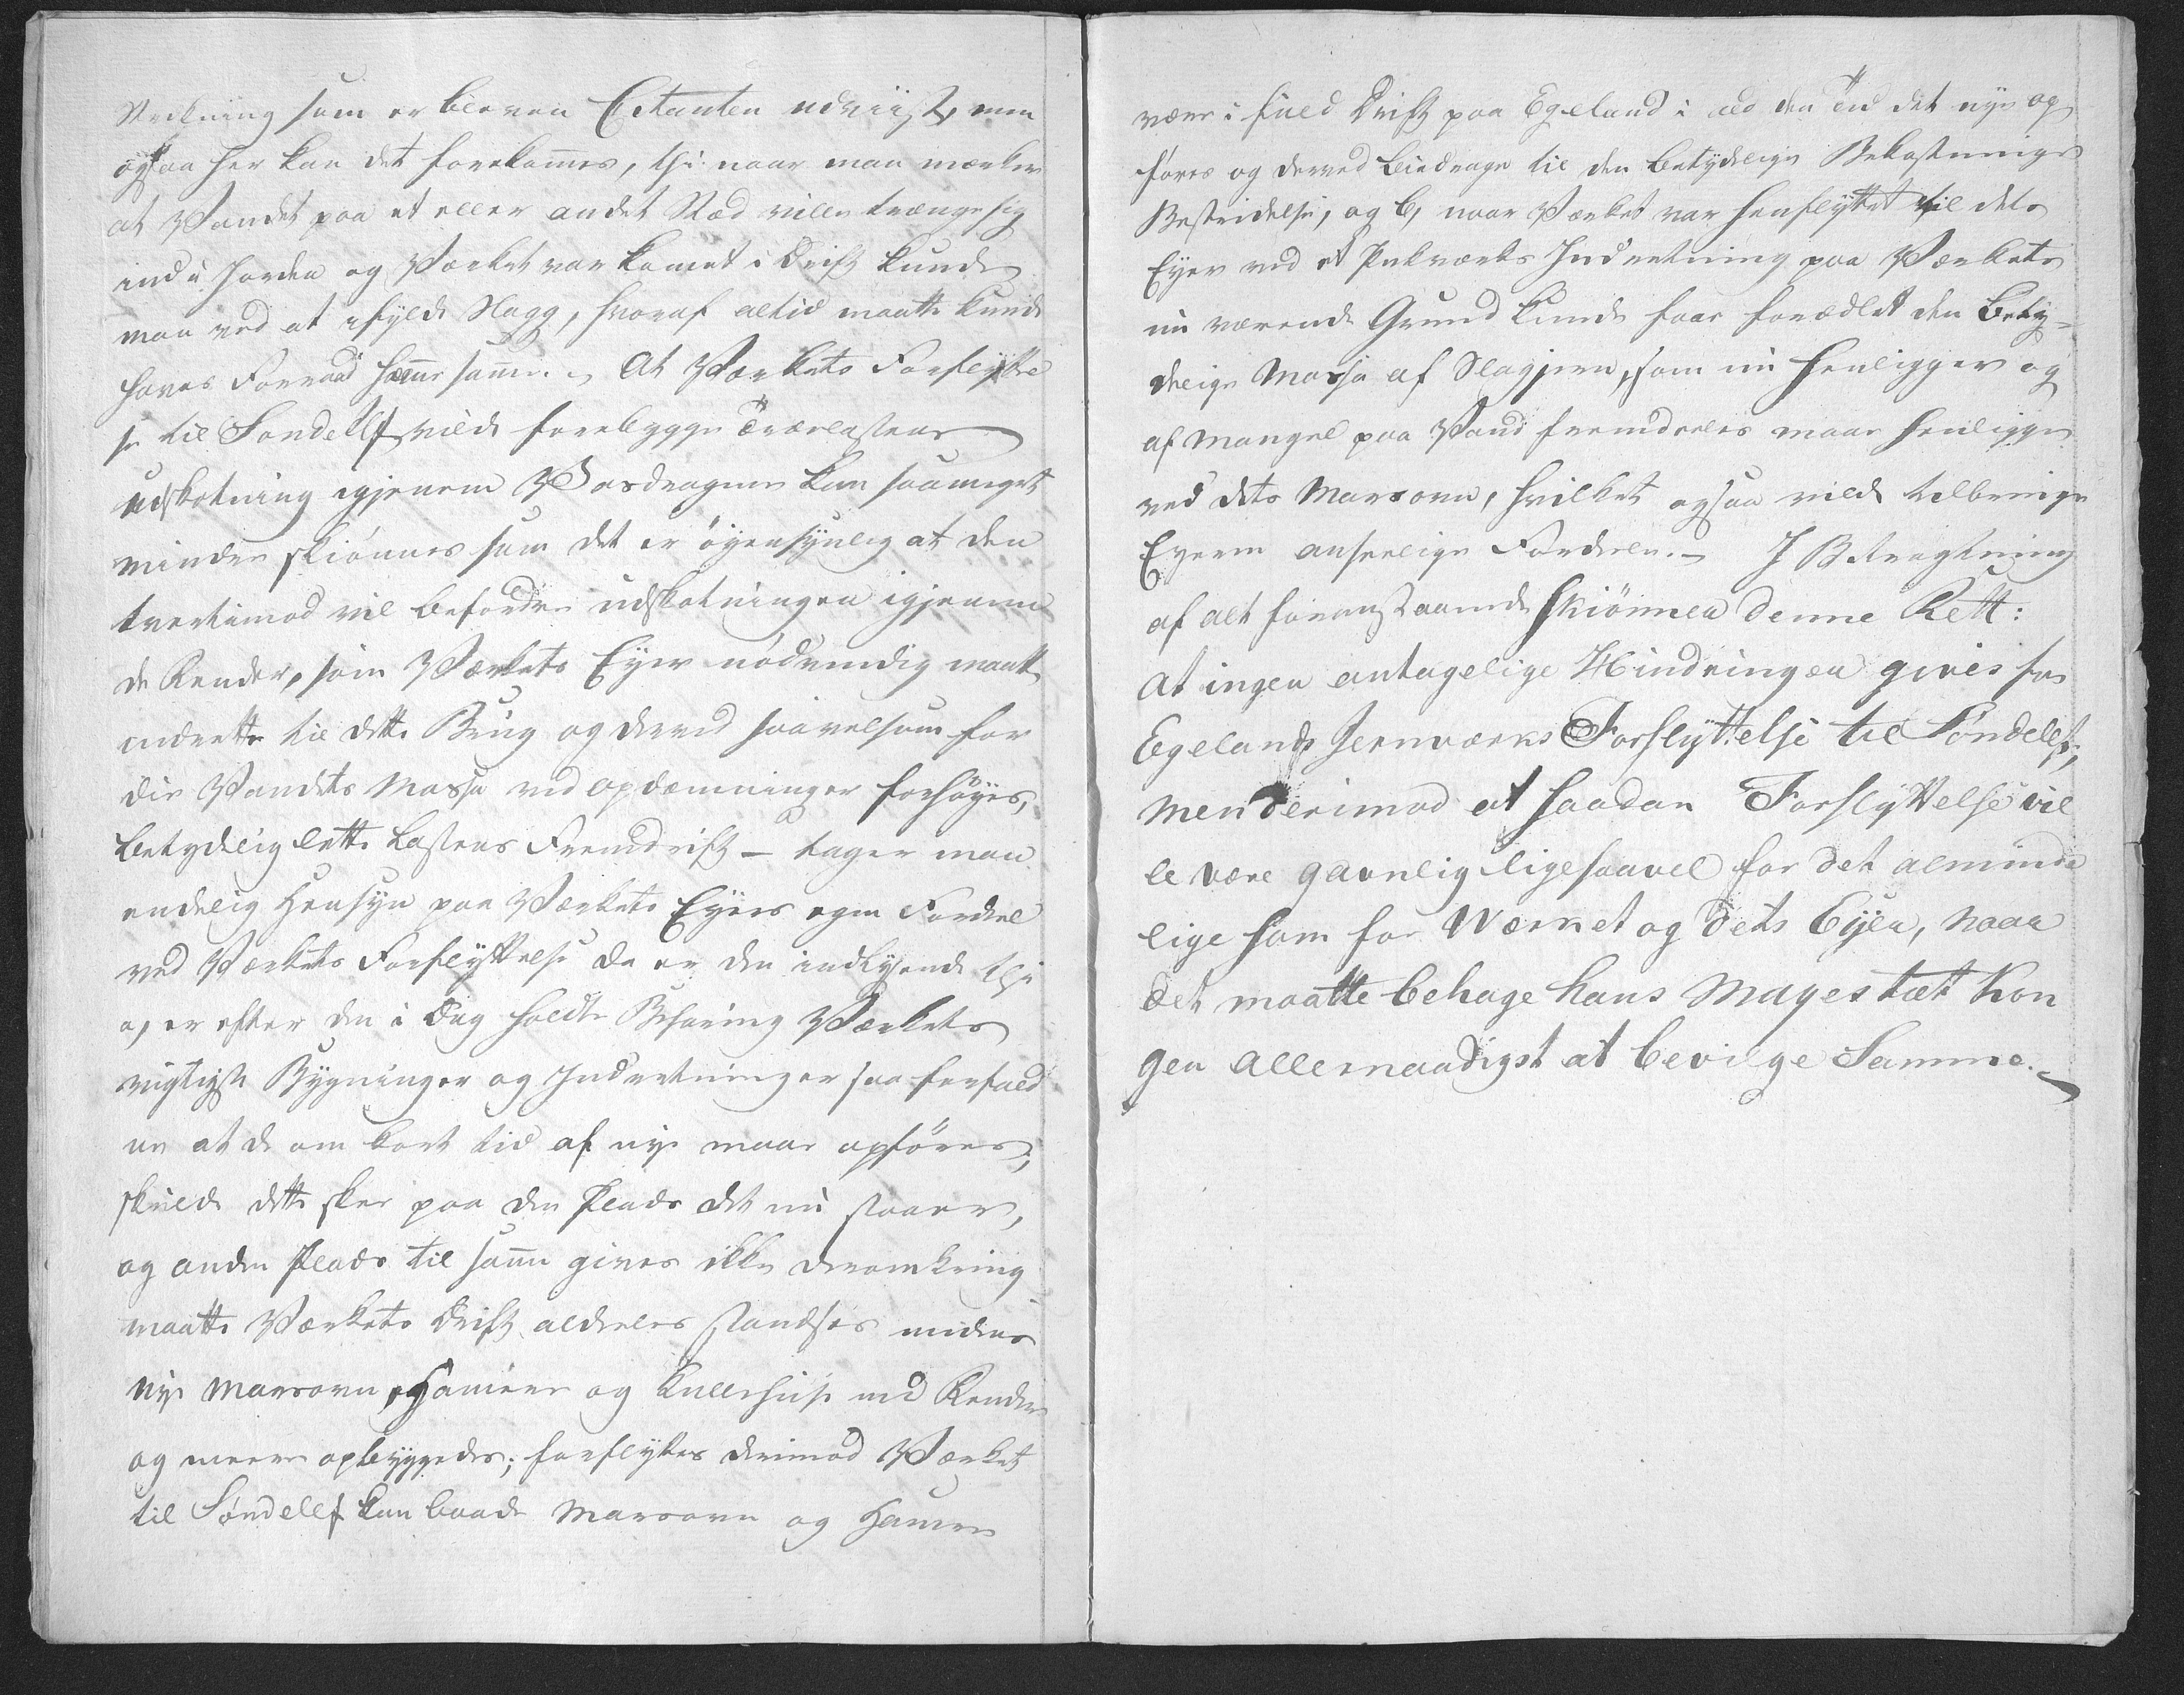 Strekning som er bleven Citanten udviist, men
ogsaa her kan det forekommes, thi naar man mærker
at Vandet paa et eller andet Stæd ville trænge sig
ind i Jorden og Værket var kommet i Drift kunde
man ved at ifylde Slagg, hvoraf altid maatte kunde
haves Forraad hæmme samme. At Værkets Forflyttel
se til Søndelef vilde forebygge Trælastens
udskotning igjennem Vasdragene kan saameget
mindre skiønnes som det er øyensynlig at den
tvertimod vil befordre udskotningen igjennem
de Render, som Værkets Eyer nødvendig maatte
indrette til dette Brug og derved saavelsom for
die Vandets Massa ved opdæmninger forhøyes,
betydelig lette Lastens Fremdrift – tager man
endelig Hensyn paa Værkets Eyers egen Fordeel
ved Værkets Forflyttelse da er den indlysende thi
a, er efter den i Dag holdte Befaring Værkets
vigtigste Bygninger og Indretninger saa forfald
ne at de om kort tid af nye maae opføres;
skulde dette skee paa den Plads det nu staaer,
og anden Plads til samme gives ikke deromkring
maatte Værkets Drift aldeles standses medens
nye Masovn, Hamere og Kullehuse med Render
og meere opbyggedes; forflyttes derimod Værket
til Søndelef kan baade Masovn og Hamer
være i fuld Drift paa Egeland i all den Tid det nye op
føres og derved biedrage til den betydelige Bekostnings
Bestridelse, og b, naar Værket var henflyttet vil dets
Eyer ved et Pukværks Indretning paa Værkets
nu værende Grund kunde faae forædlet den bety-
delige Massa af Slagjern, som nu henligger og
af Mangel paa Vand fremdeeles maae henligge
ved dets Masovn, hvilket ogsaa vilde tilbringe
Eyeren anseelige Fordeele. – I Betragtning
af alt foranstaaende skiønner denne Rett:
at ingen antagelige Hindringer gives for
Egelands Jernværks Forflyttelse til Søndelef,
men derimod at saadan Forflyttelse vil
le være gavnlig ligesaavel for det alminde
lige som for Værket og dets Eyer, naar
det maatte behage hans Mayestæt Kon
gen allernaadigst at bevilge Samme.